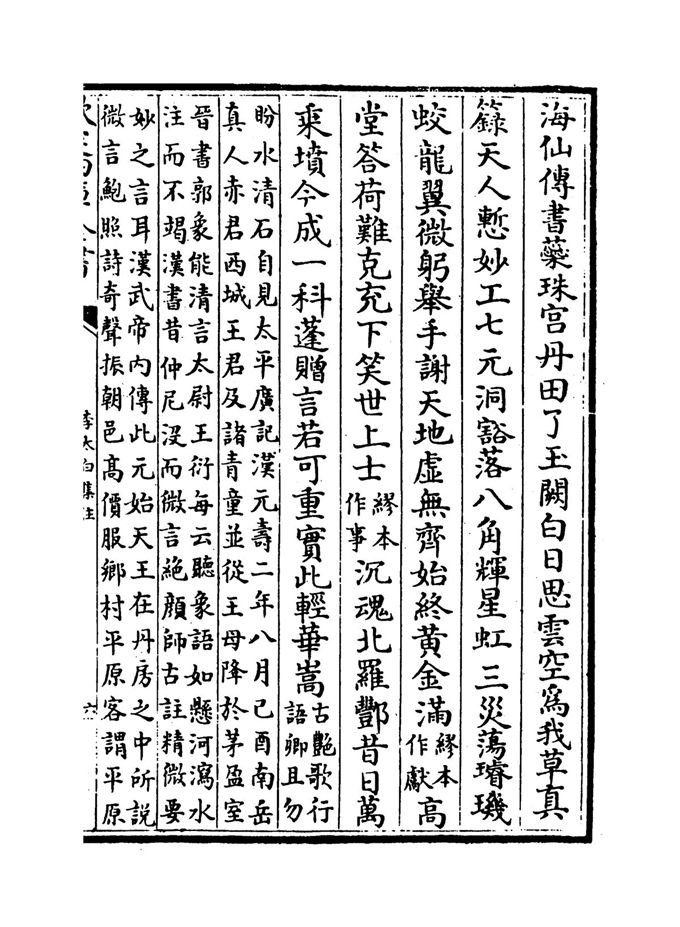 海仙傳書蘂珠宫丹田了玉闕白日思雲空為我草真
籙天人慙妙工七元洞豁落八角輝星虹三災蕩璿璣
蛟龍翼微躬舉手謝天地虛無齊始終黄金滿繆本作獻高
堂答荷難克充下笑世上士繆本作事沉魂北羅酆昔日萬
乘墳今成一科蓬贈言若可重實此輕華嵩古艷歌行語卿且勿
盼水清石自見太平廣記漢元壽二年八月己酉南岳
真人赤君西城王君及諸青童並從王母降於茅盈室
晉書郭象能清言太尉王衍每云聽象語如懸河瀉水
注而不竭漢書昔仲尼没而微言絶顔師古註精微要
妙之言耳漢武帝内傳此元始天王在丹房之中所說
微言鮑照詩奇聲振朝邑髙價服鄉村平原客謂平原
欽定四庫全書
李太白集注
六